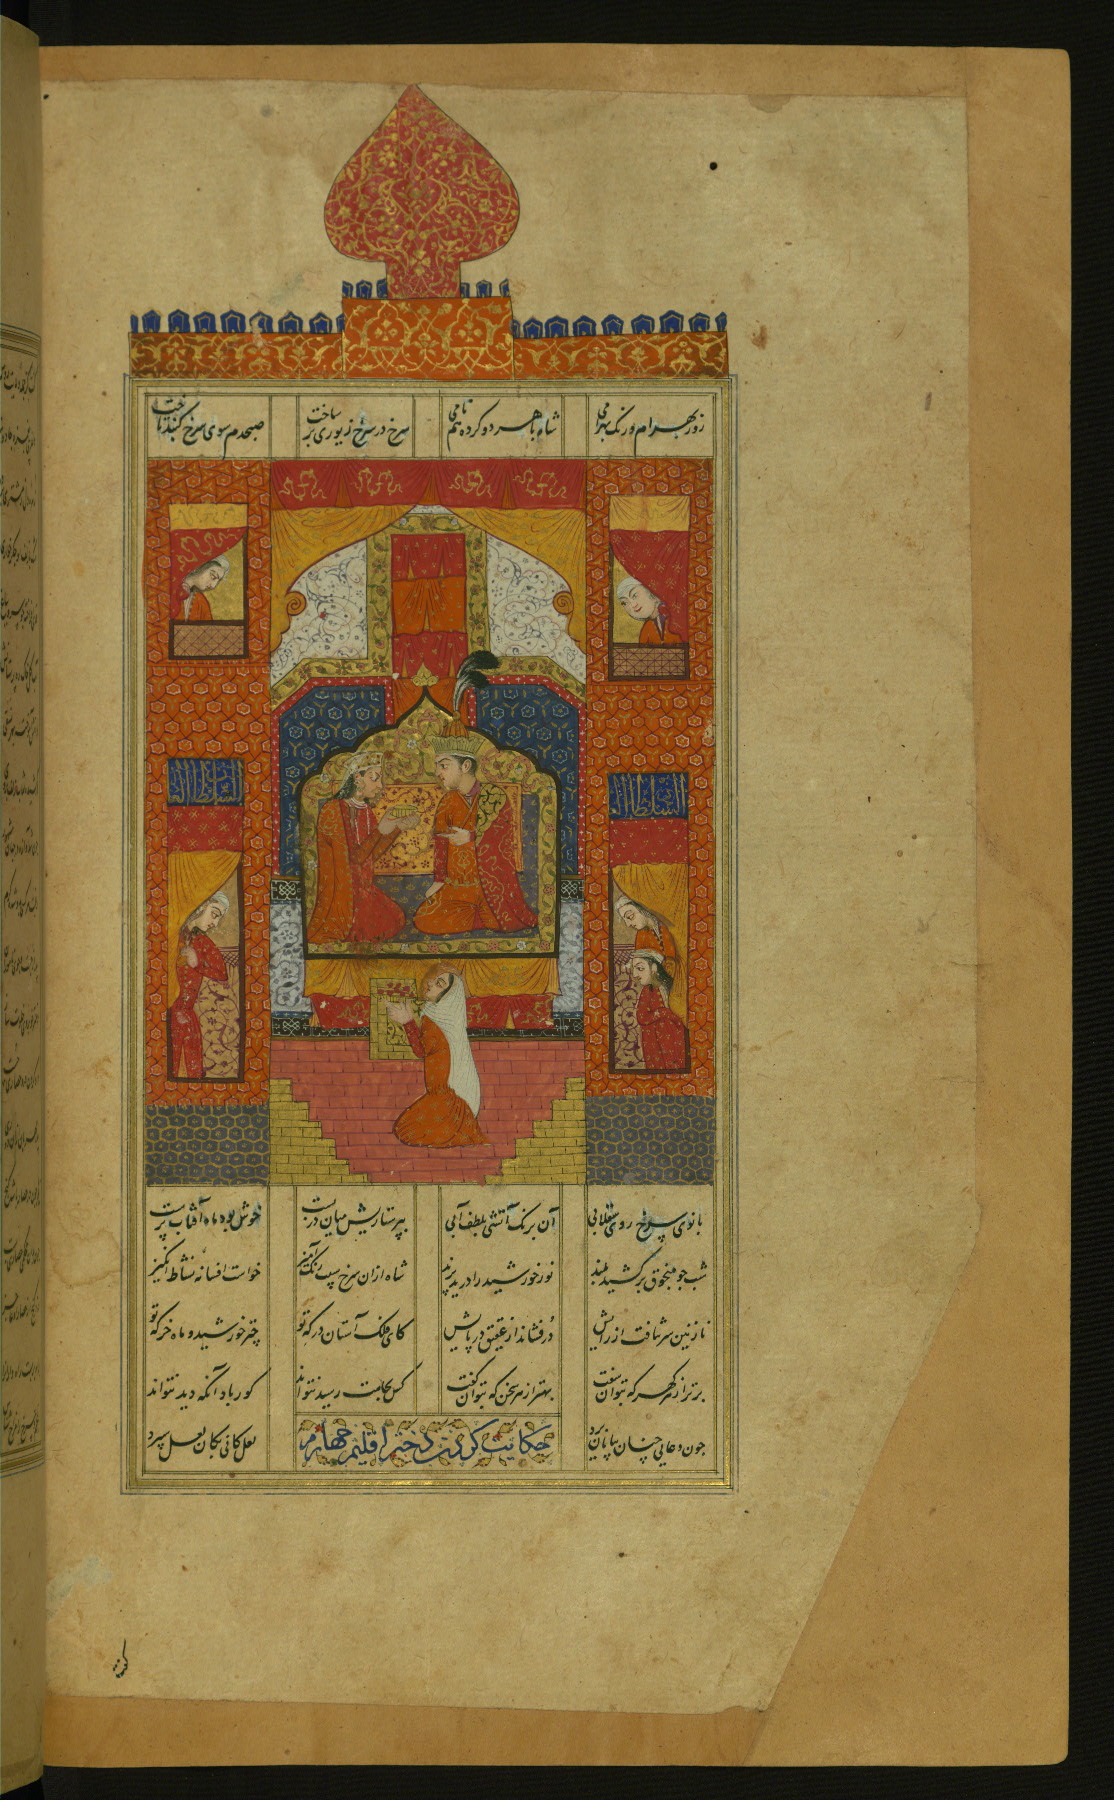 روز بهرام و رنگ بهرامی شاه با هر دو کرده هم نامی سرخ در سرخ زیوری بر ساخت صبحدم سوی سرخ گنبد تاخت
السلطان ال
السلطان العا
بانوی سرخ روی سقلابی آن برنگ آتشی بلطف آبی بپرستاریش میان در بست خوش بود ماه آفتاب پرست
شب چو منجوق بر کشید بلند نور خورشید را درید پرند شاه ازان سرخ سیب آمیز خواست افسانه نشاط انگیز
نازنین سر نتافت از رایش در فشاند از عقیق در پایش کای فلک آستان درگه تو چتر خورشید و ماه خرگه تو
برتر از هر گهر که بتوان سفت بهتر از هر سخن که بتوان گفت کس بجایت رسید نتواند کور باد آنکه دید نتواند
چون دعایی چنان بپایان برد حکایت کردن دختر اقلیم چهارم لعل کانی بکان لعل سپرد